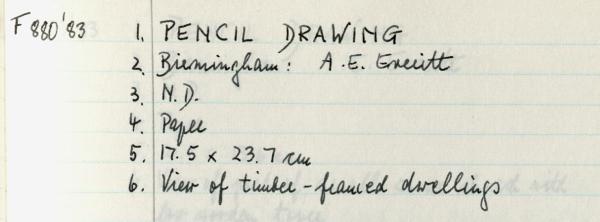 F880'83
1. PENCIL DRAWING
2. Birmingham: A.E. Everitt
3. N.D.
4. Paper
5. 17.5 x 23.7 cm
6. View of timber-framed dwellings